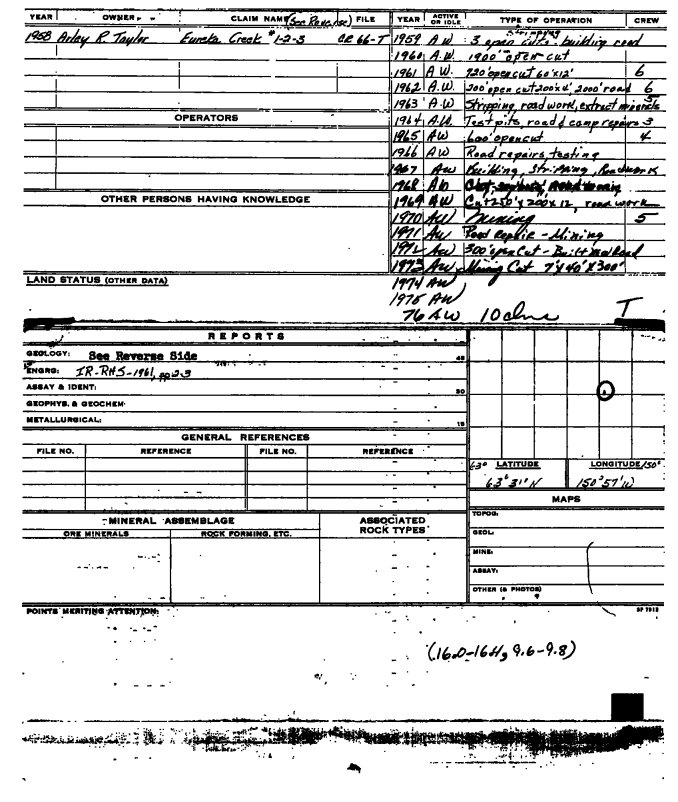 YEAR OWNER CLAIM NAME (See Reverse) FILE
1958 Arley R. Taylor Eureka Creek #1-2-3 CR 66-T
OPERATORS
OTHER PERSONS HAVING KNOWLEDGE
LAND STATUS (OTHER DATA)
YEAR ACTIVE OR IDLE TYPE OF OPERATION CREW
Stripping
1959 A W. 3 open cuts - building road
1960 A.W. 1900' open cut
1961 A W. 720' open cut 60'x12' 6
1962 A.W. 200' open cut 200'x4', 2000' road 6
1963 A.W Stripping, road work, extract minerals 5
1964 A.W. Test pits, road & camp repairs 3
1965 AW 600' open cut 4
1966 AW Road repairs, testing
1967 AW Building, Stripping, Roadwork
1968 AW
1969 AW Cut 250' x 200 x 12, road work
1970 AW Mining 5
1971 AW Road Repair - Mining
1972 AW 300' open Cut - Built Road
1973 AW Mining Cut 7'x40'x300'
1974 AW
1975 AW
76 AW 10 clms T
REPORTS
GEOLOGY: See Reverse Side
ENGRG: IR-RHS-1961, pp 2-3
ASSAY & IDENT:
GEOPHYS. & GEOCHEM:
METALLURGICAL:
45
30
15
GENERAL REFERENCES
FILE NO. REFERENCE FILE NO. REFERENCE
63° LATITUDE LONGITUDE 150°
63°31'N 150°57'W
MAPS
TOPOG:
GEOL:
MINE:
ASSAY:
OTHER (& PHOTOS)
MINERAL ASSEMBLAGE ASSOCIATED ROCK TYPES
ORE MINERALS ROCK FORMING, ETC.
POINTS MERITING ATTENTION:
SP 7913
(16.0-16.4, 9.6-9.8)